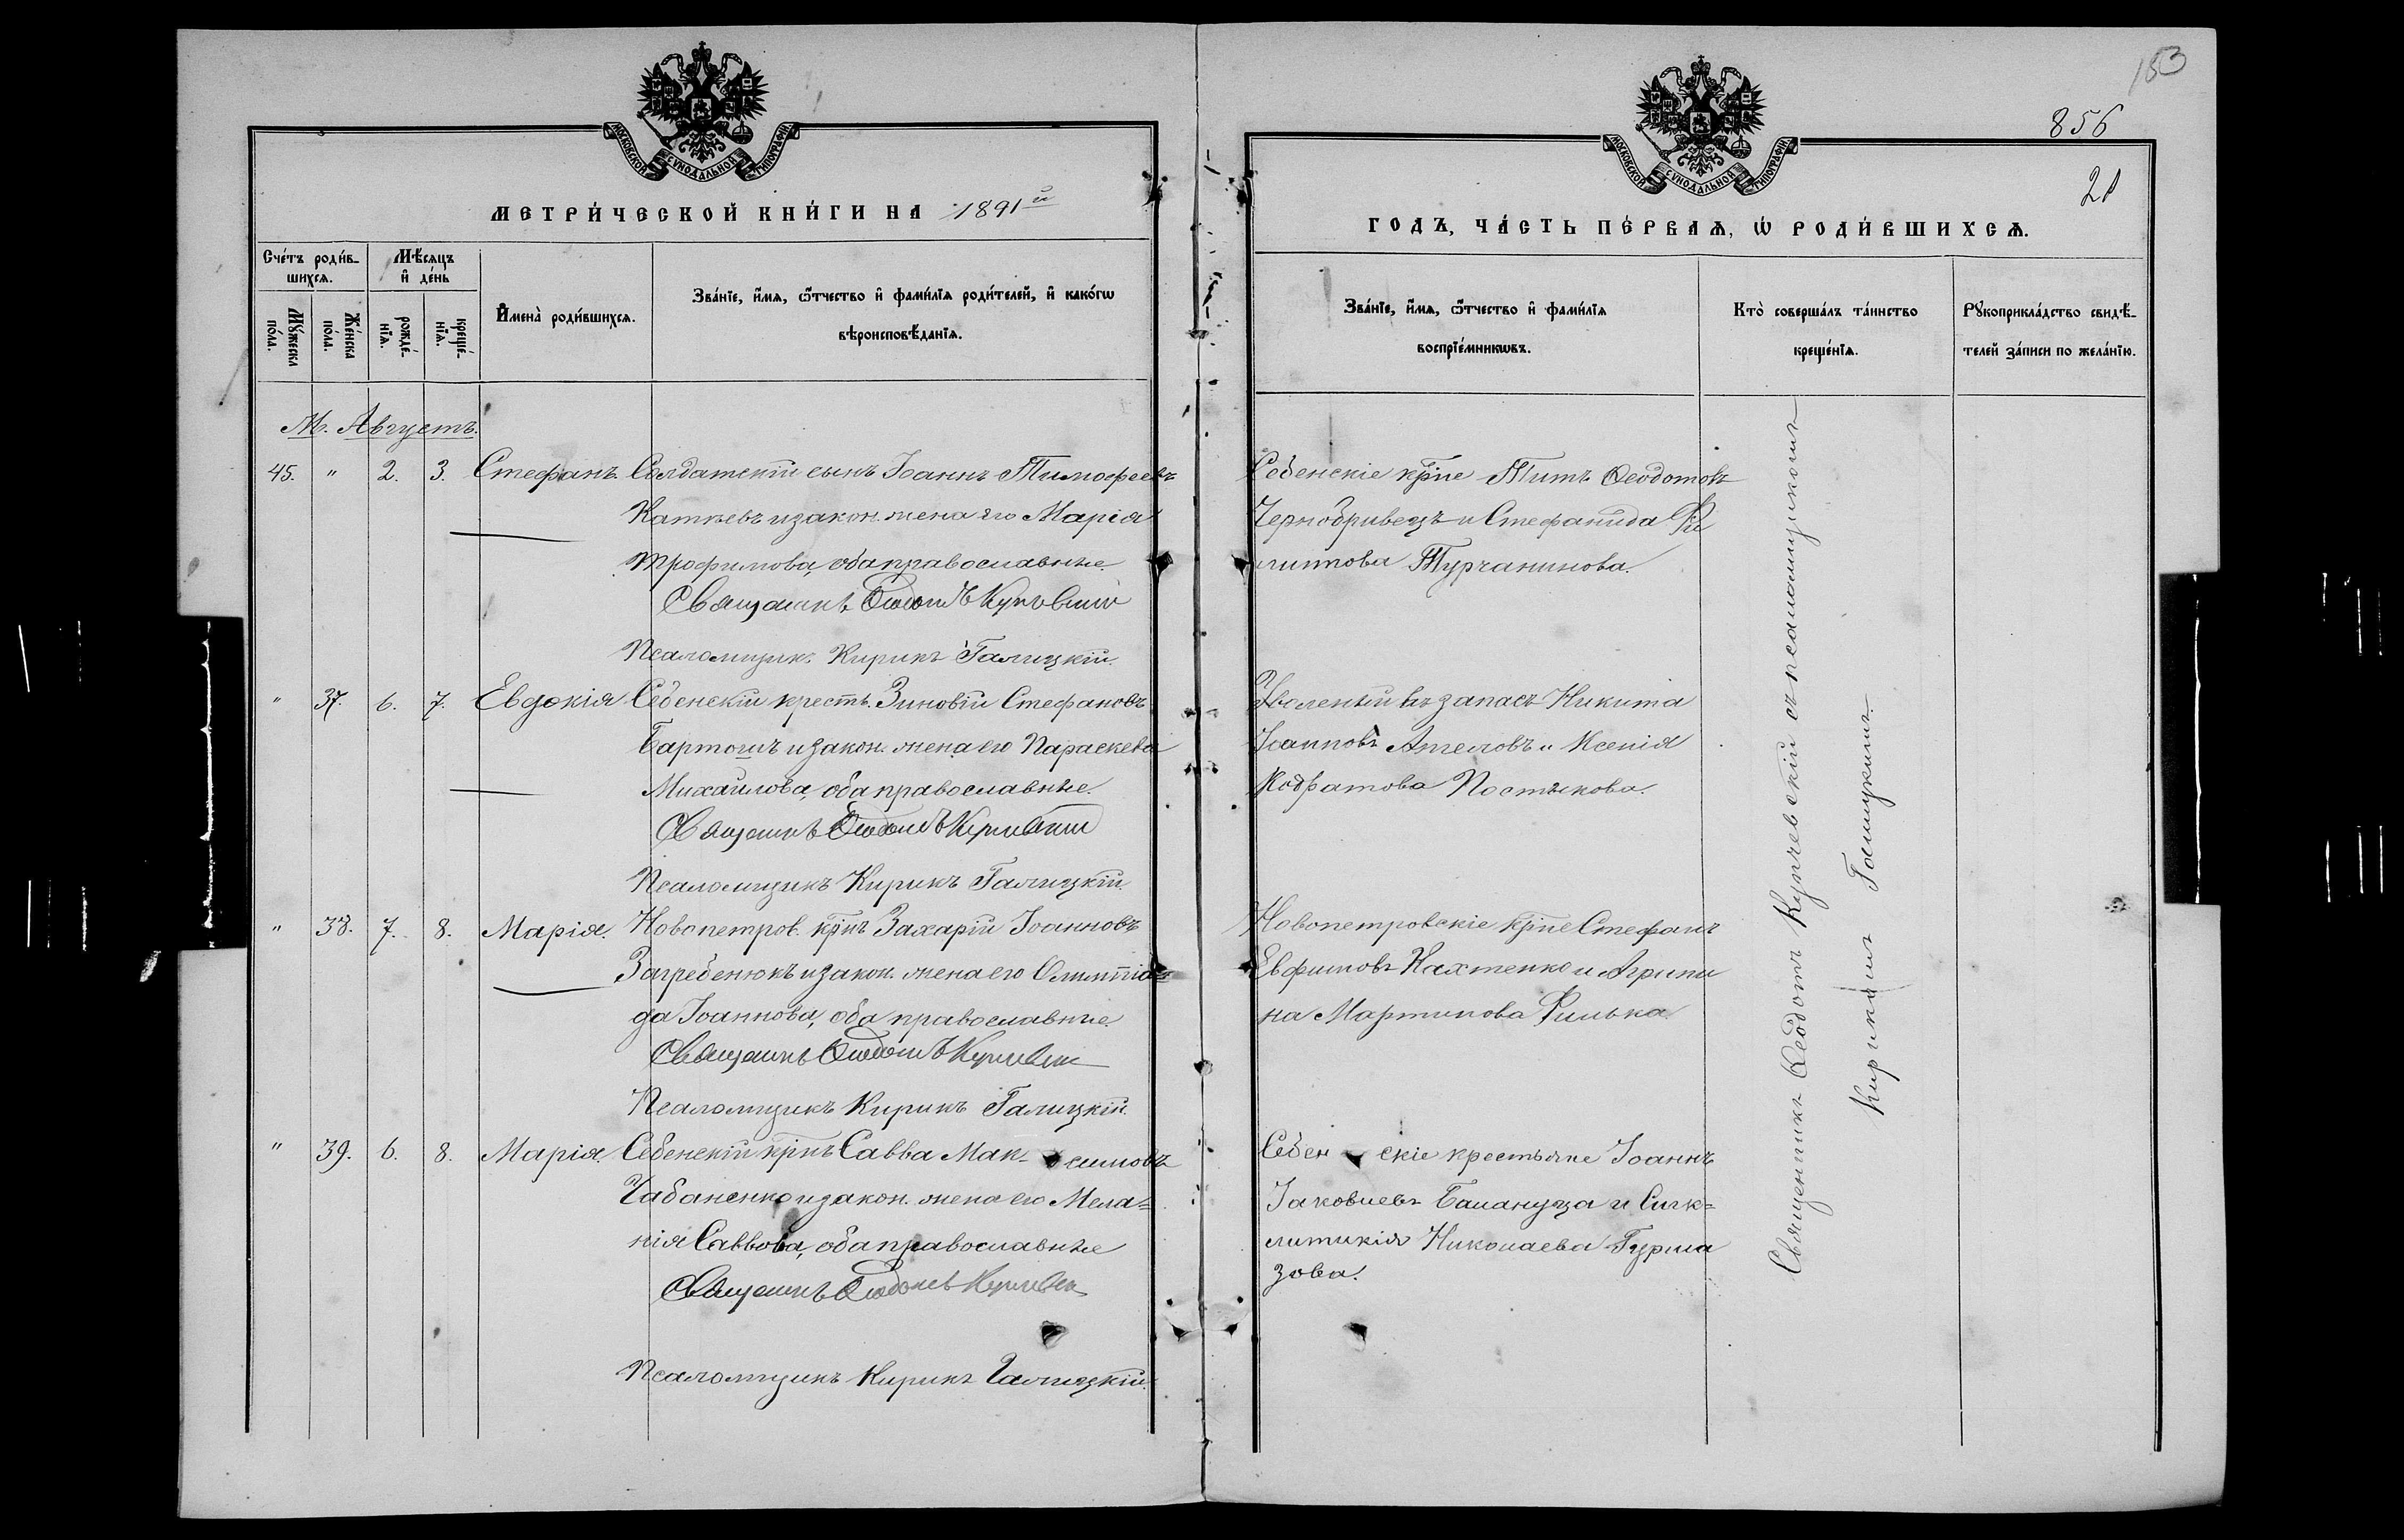 153
856
21
МОСКОВСКОЙ СѴНОДАЛЬНОЙ ТИПОГРАФІИ
МОСКОВСКОЙ СѴНОДАЛЬНОЙ ТИПОГРАФІИ
МЕТРИ́ЧЕСКОЙ КНИ́ГИ НА 1891й
ГОДЪ, ЧА́СТЬ ПЕ́РВАѦ, Ѡ РОДИ́ВШИХСѦ.
Сче́тъ роди́в-
шихсѧ.
Мѣ́сѧцъ
и҆ де́нь
Мꙋ́жеска
по́ла.
Же́нска
по́ла.
рожде́-
нїѧ.
креще́-
нїѧ.
И҆мена̀ роди́вшихсѧ.
Зва́нїе, и҆́мѧ, ѿ́тчество и҆ фами́лїѧ роди́телей, и҆ како́гѡ
вѣроисповѣ́данїѧ.
Зва́нїе, и҆́мѧ, ѿ́тчество и҆ фами́лїѧ
воспрїе́мникѡвъ.
Кто̀ соверша́лъ та́инство
креще́нїѧ.
Рꙋкоприкла́дство свидѣ́-
телей за́писи по жела́нїю.
М. Августъ.
45. " 2. 3. Стефанъ. Солдатскій сынъ Іоаннъ Тимофеевъ
Катневъ и закон. жена его Марія
Трофимова, оба православные.
Священникъ Ѳеодотъ Купчевскій
Псаломщикъ Кирикъ Галицкій.
Себенскіе кр̃не Титъ Ѳеодотовъ
Чернобривецъ и Стефанида Фи
липпова Турчанинова.
" 37. 6. 7. Евдокія Себенскій крестъ. Зиновій Стефановъ
Бартошъ и закон. жена его Параскева
Михайлова, оба православные.
Священникъ Ѳеодотъ Купчевскій
Псаломщикъ Кирикъ Галицкій.
Уволенный въ запасъ Никита
Іоанновъ Ателовъ и Ксенія
Кодратова Постикова.
" 38. 7. 8. Марія. Новопетров. кр̃нъ Захарій Іоанновъ
Загребенюкъ и закон. жена его Олимпіа=
да Іоаннова, оба православные.
Священникъ Ѳеодотъ Купчевскій
Псаломщикъ Кирикъ Галицкій.
Новопетровскіе кр̃не Стефанъ
Евфимовъ Нахтенко и Агрипи
на Мартинова Филька.
" 39. 6. 8. Марія. Себенскій кр̃нъ Савва Мак- симовъ
Чабаненко и закон. жена его Мела=
нія Саввова, оба православные
Священникъ Ѳеодотъ Купчевскій
Псаломщикъ Кирикъ Галицкій.
Себен скіе крестьяне Іоаннъ
Іаковлевъ Балануца и Сигк=
литикія Николаева Гурма
зова.
Священникъ Ѳеодотъ Купчевскій съ псаломщикомъ
Кирикомъ Галицкимъ.